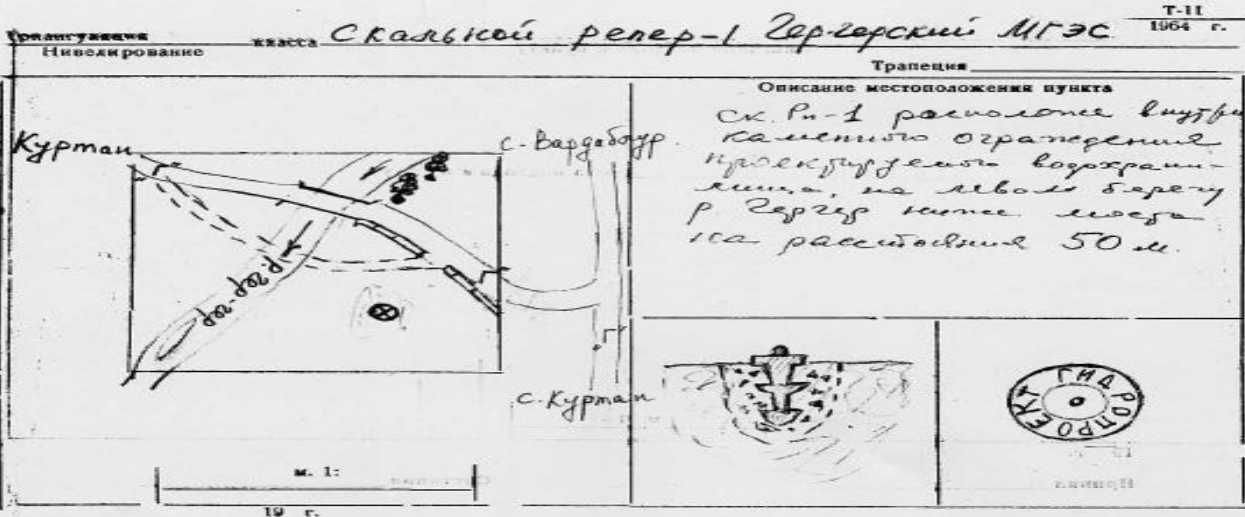 Т-II
1964 г.
Триангуляция
Нивелирование
класса Скальной репер-1 Гергерский МГЭС
Трапеция
Описание местоположения пункта
Ск. Рп-1 расположен внутри
каменного ограждения
проектируемого водохрани-
лища, на левом берегу
р. Гергер ниже моста
на расстояния 50 м.
Куртан
с. Вардаблур.
р. Гер-гер
с. Куртан
ГИДРОПРОЕКТ
м. 1:
19 г.